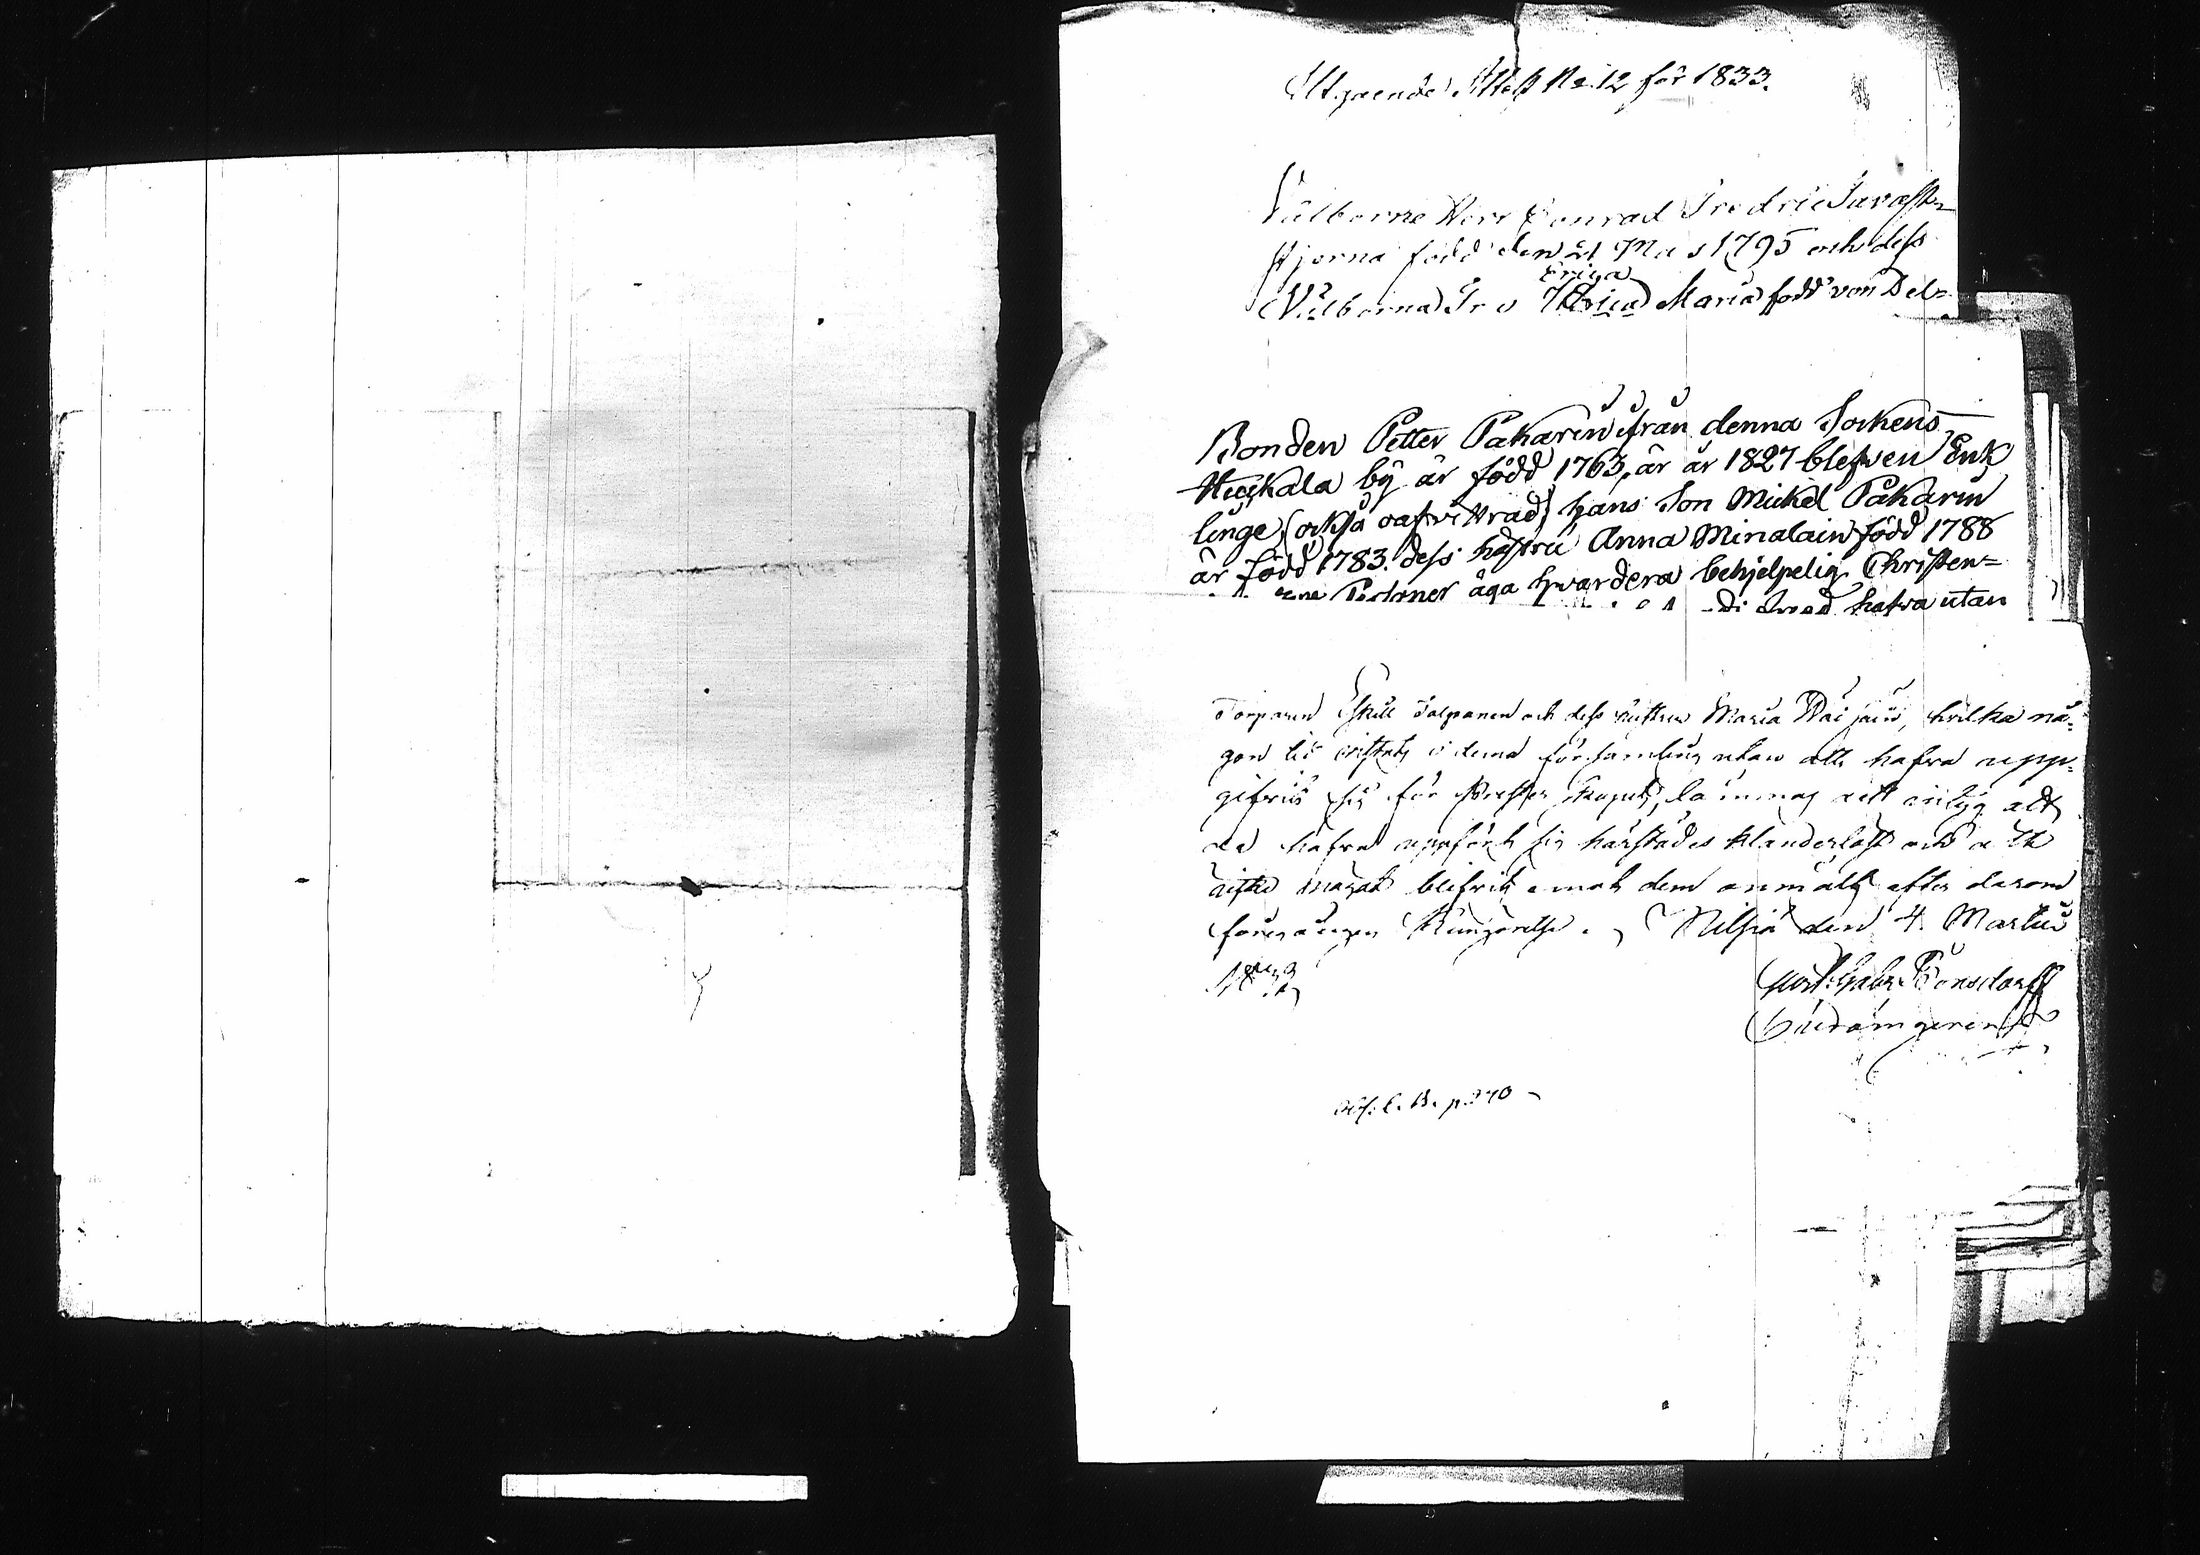 Utgående Attest No 12 för 1833.
Välborne Herr Conrad Fredric Tavast-
stjerna född den 21 Maj 1795 och dess
Eriga
Välborna Fru Maria född von Del-
Bonden Petter Pakarin ifrån denna Sockens
by är född 1763, är år 1827 blefven Enk
linge, (också oafvittrad) hans Son Mickel Pakarin
är född 1783. dess hustru Anna Minalain född 1788
Personer äga hvardera behjelpelig Christen-
hafva utan
Torparen Eskill Tolpanen och dess hustru Maria hvilka nå-
gon tid vistats i denna församling utan att hafva upp-
gifvit sig för Presterskapet, lämnas det intyg att
de hafva uppfört sig härstädes klanderlöst och att
icke något blifvit emot dem anmält efter derom
föregången Kungörelse. Nilsiä den 4 Martii
1833
Gabr. Bonsdorff
Abs. C. B. p 270